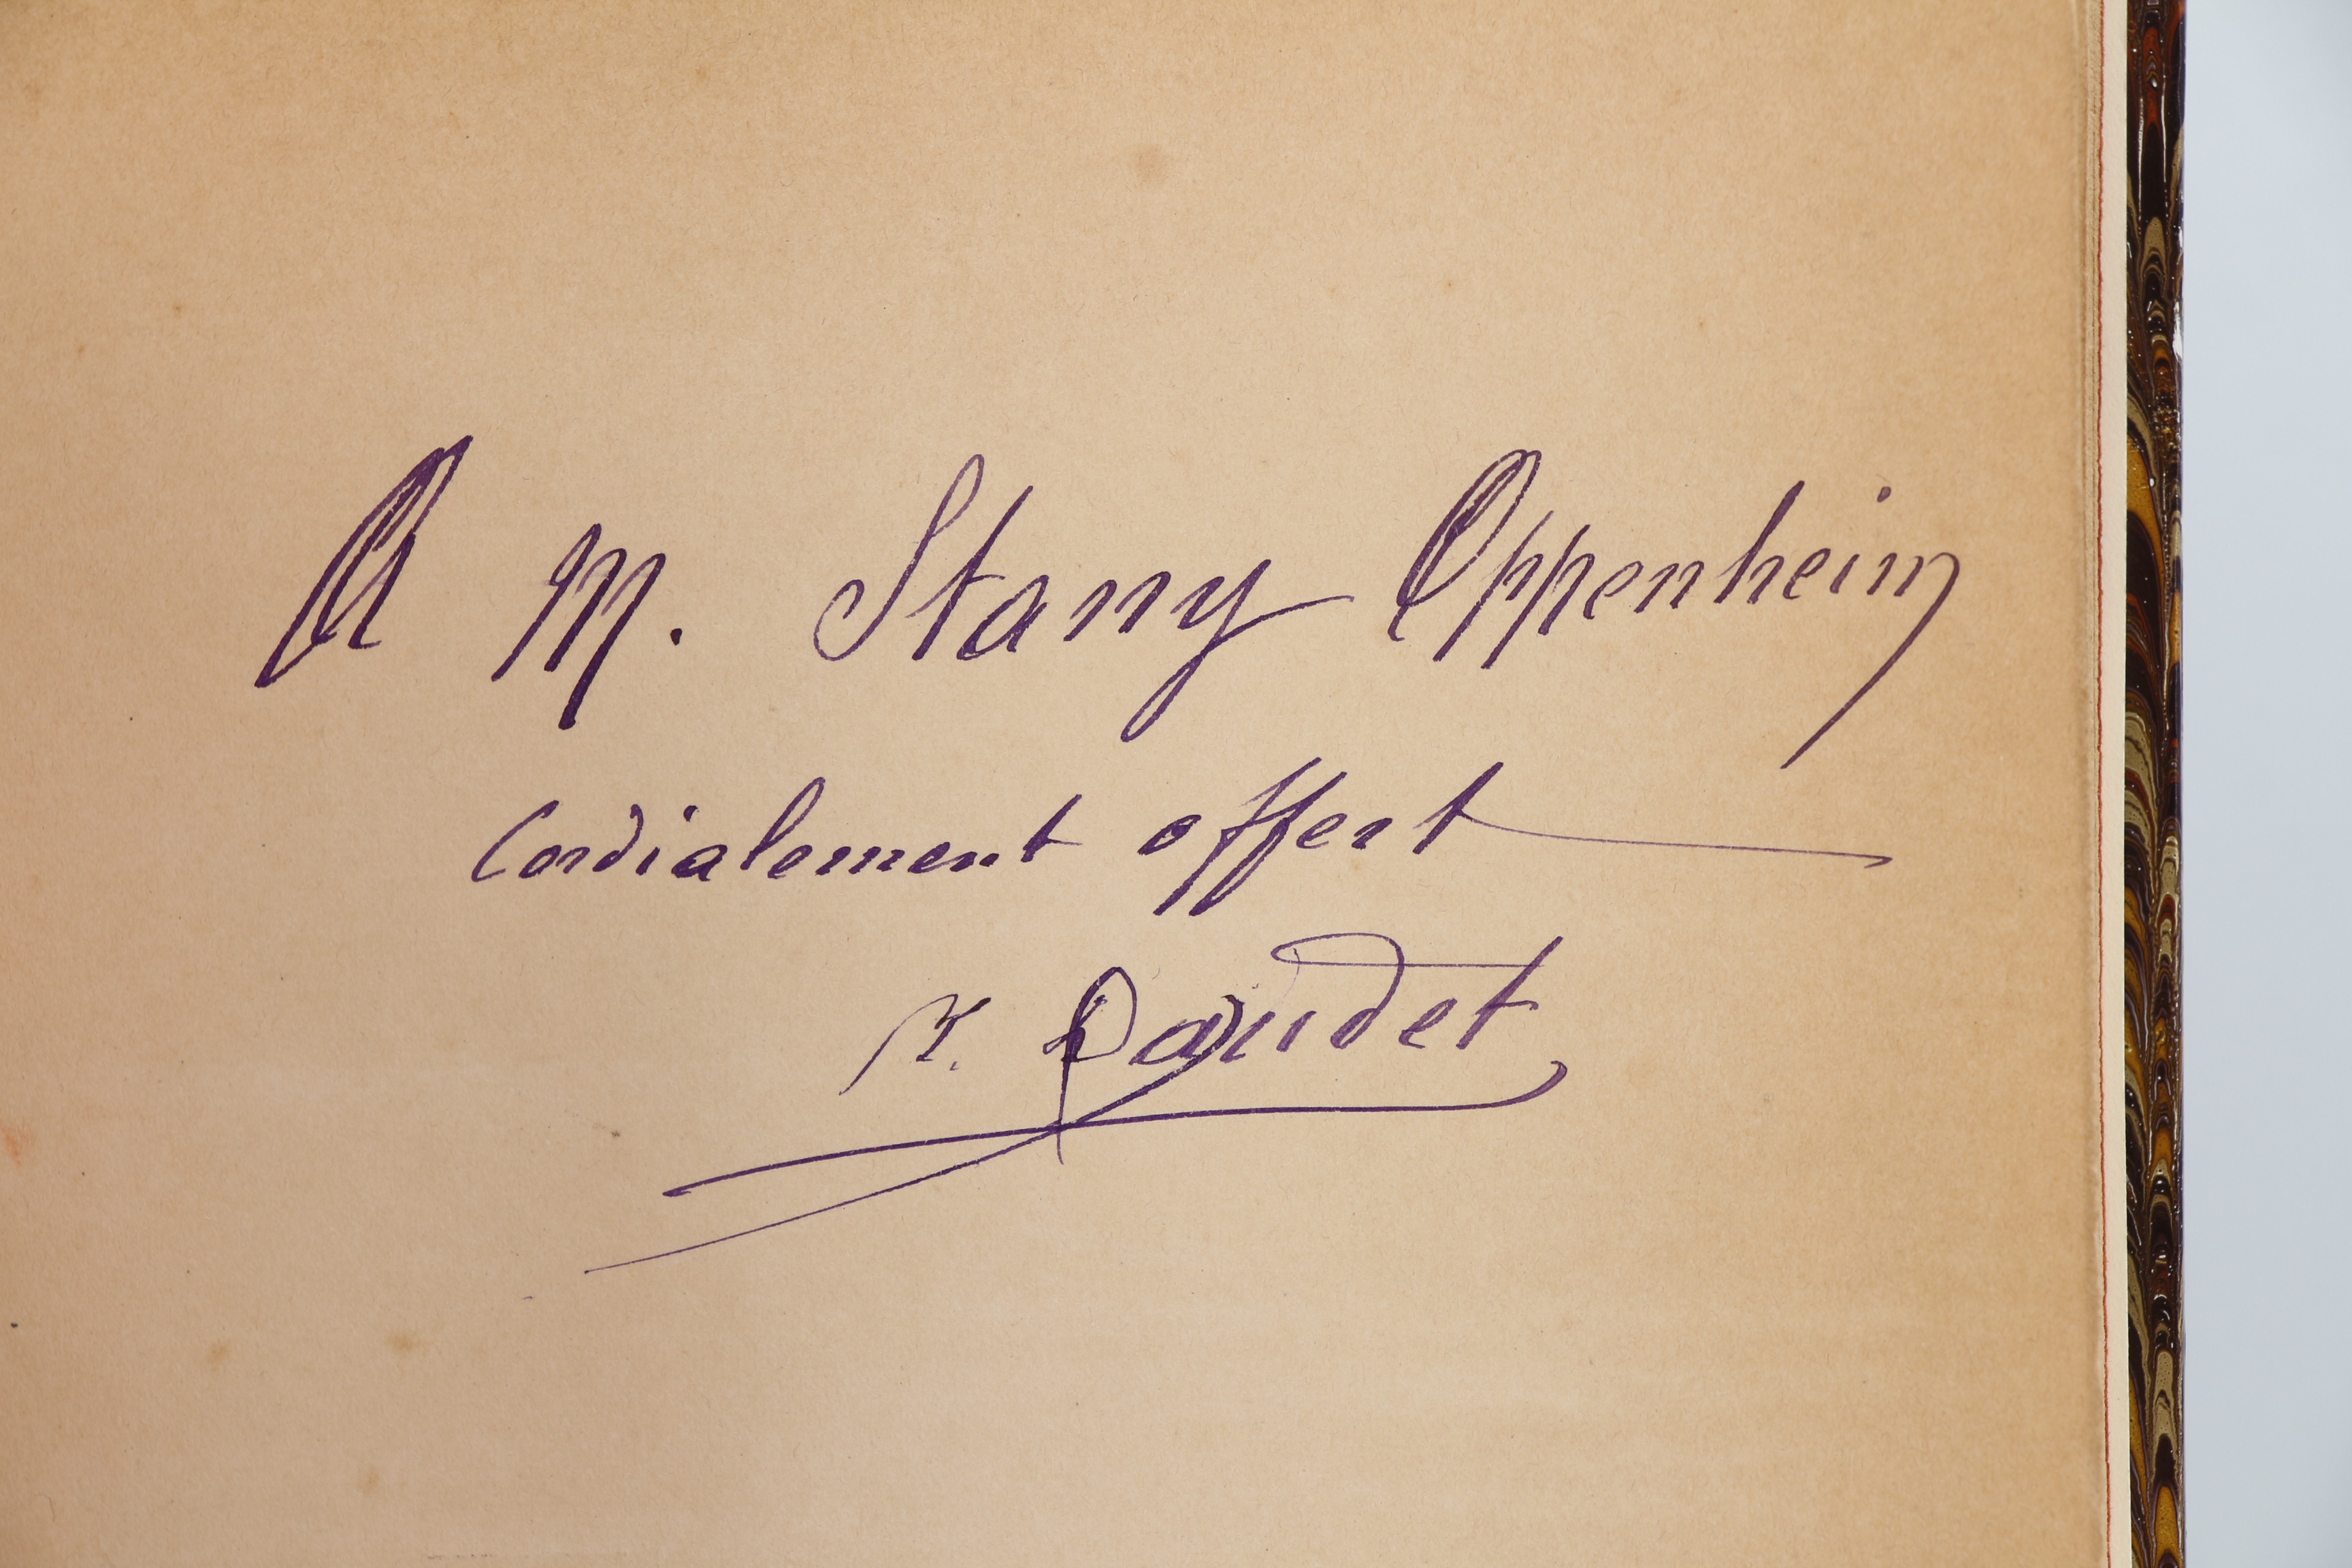 A M. Stany Oppenheim
Cordialement offert
Daudet